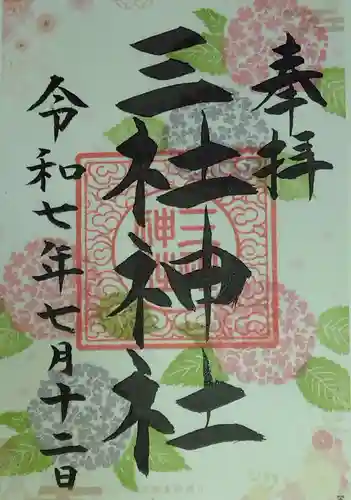 奉拝
三社神社
令和七年七月十二日
三社
神社